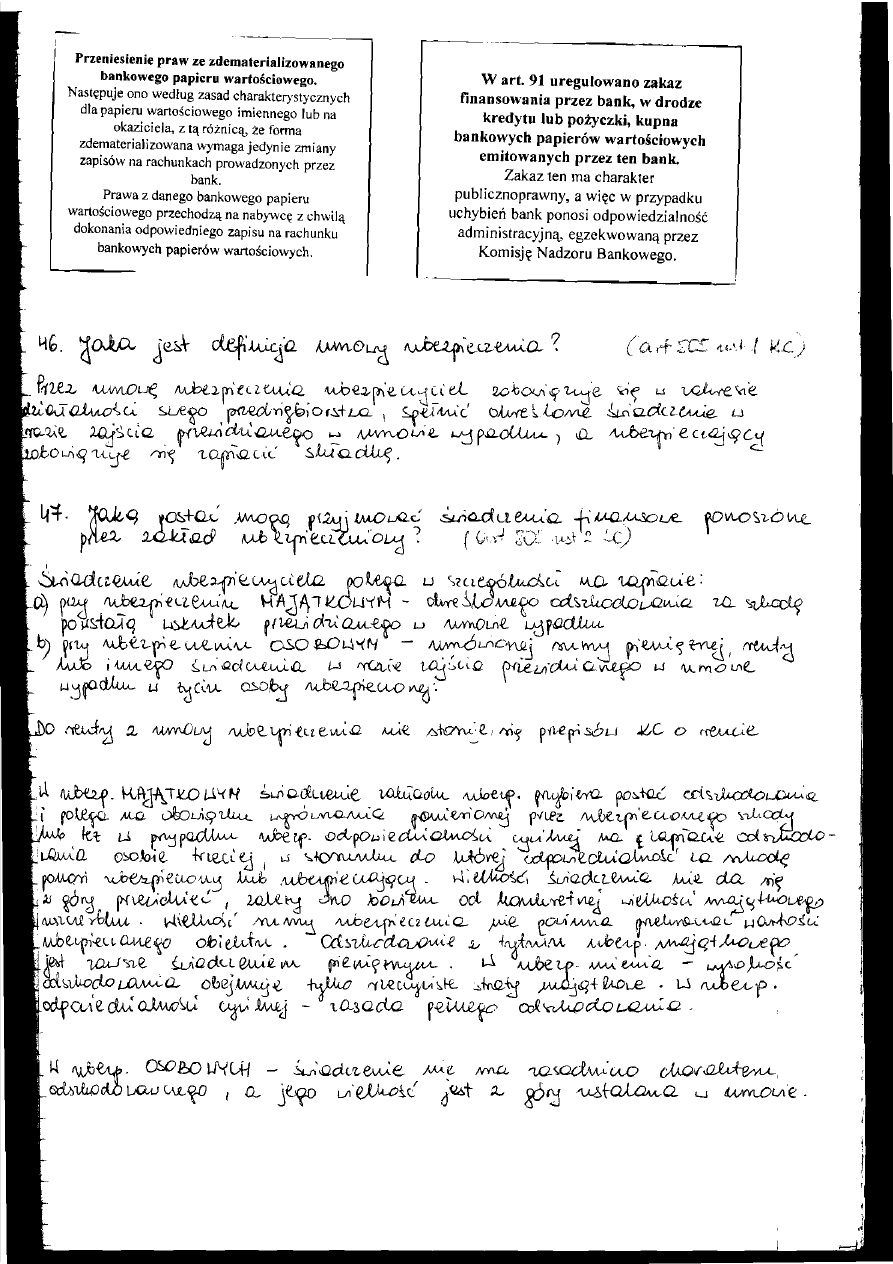 Przeniesienie praw ze zdematerializowanego
bankowego papieru wartościowego.
Następuje ono według zasad charakterystycznych
dla papieru wartościowego imiennego lub na
okaziciela, z tą różnicą, że forma
zdematerializowana wymaga jedynie zmiany
zapisów na rachunkach prowadzonych przez
bank.
Prawa z danego bankowego papieru
wartościowego przechodzą na nabywcę z chwilą
dokonania odpowiedniego zapisu na rachunku
bankowych papierów wartościowych.
W art. 91 uregulowano zakaz
finansowania przez bank, w drodze
kredytu lub pożyczki, kupna
bankowych papierów wartościowych
emitowanych przez ten bank.
Zakaz ten ma charakter
publicznoprawny, a więc w przypadku
uchybień bank ponosi odpowiedzialność
administracyjną, egzekwowaną przez
Komisję Nadzoru Bankowego.
46. Jaka jest definicja umowy ubezpieczenia? (art 805 ust 1 KC)
Przez umowę ubezpieczenia ubezpieczyciel zobowiązuje się w zakresie
działalności swego przedsiębiorstwa, spełnić określone świadczenie w
razie zajścia przewidzianego w umowie wypadku, a ubezpieczający
zobowiązuje się zapłacić składkę.
47. Jaką postać mogą przyjmować świadczenia finansowe ponoszone
przez zakład ubezpieczeniowy? (art 805 ust 2 KC)
Świadczenie ubezpieczyciela polega w szczególności na zapłacie:
a) przy ubezpieczeniu MAJĄTKOWYM - określonego odszkodowania za szkodę
powstałą wskutek przewidzianego w umowie wypadku
b) przy ubezpieczeniu OSOBOWYM - umówionej sumy pieniężnej, renty
lub innego świadczenia w razie zajścia przewidzianego w umowie
wypadku w życiu osoby ubezpieczonej.
DO renty z umowy ubezpieczenia nie stosuje się przepisów KC o rencie
W ubezp. MAJĄTKOWYM świadczenie zakładu ubezp. przybiera postać odszkodowania
i polega na obowiązku wyrównania poniesionej przez ubezpieczonego szkody
lub też w przypadku ubezp. odpowiedzialności cywilnej na zapłacie odszkodo-
wania osobie trzeciej, w stosunku do której odpowiedzialność za szkodę
ponosi ubezpieczony lub ubezpieczający. Wielkości świadczenia nie da się
z góry przewidzieć, zależy ono bowiem od konkretnej wielkości majątkowego
uszczerbku. Wielkość sumy ubezpieczenia nie powinna przekraczać wartości
ubezpieczanego obiektu. Odszkodowanie z tytułu ubezp. majątkowego
jest zawsze świadczeniem pieniężnym. W ubezp. mienia - wysokość
odszkodowania obejmuje tylko rzeczywiste straty majątkowe. W ubezp.
odpowiedzialności cywilnej - zasada pełnego odszkodowania.
W ubezp. OSOBOWYCH - świadczenie nie ma zasadniczo charakteru
odszkodowawczego, a jego wielkość jest z góry ustalana w umowie.